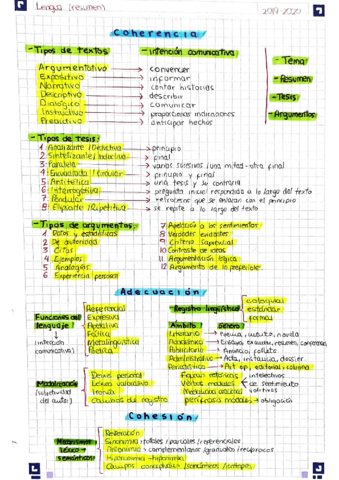 Lengua (resumen)
2019-2020
Coherencia
-Tipos de textos
-intención comunicativa
Argumentativo → convencer
Expositivo → informar
Narrativo → contar historias
Descriptivo → describir
Dialógico → comunicar
Instructivo → proporcionar indicaciones
Predictivo → anticipar hechos
- Tema
- Resumen
- Tesis
- Argumentos
- Tipos de tesis:
1 Analizante / Deductiva → principio
2 Sintetizante / Inductiva → final
3 Paralela → varias
4 Encuadrada / Circular → principio y final
5 Antitética → una tesis y su contraria
6 Interrogativa → pregunta inicial respondida a lo largo del texto
7 Pendular
8 Repetitiva → se repite a lo largo del texto
- Tipos de argumentos:
1 Datos y estadísticas
2 De autoridad
3 Citas
4 Ejemplos
5 Analogías
6 Experiencia personal
7 Apelación a los sentimientos
8 Verdades evidentes
9 Criterio sapiencial
10 Contraste de ideas
11 Argumentación lógica
12 Argumento de lo preferible
Adecuación
Funciones del lenguaje
(intención comunicativa)
Referencial
Expresiva
Apelativa
Fática
Metalingüística
Poética
Registro lingüístico
coloquial
estándar
formal
Ámbito
Género
Literario → Poema, novela
Académico → Ensayo, examen, resumen
Publicitario → Anuncio, folleto
Administrativo → Acta, instancia, dossier
Periodístico → Art op, editorial, columna
Modalización
(subjetividad del autor)
Deixis personal
Léxico valorativo
Ironía
Cambios de registro
Figuras retóricas
Verbos modales
de sentimiento
Modalidad oracional
perífrasis modales → obligación
Cohesión
Mecanismos léxico-semánticos
Reiteración
Sinonimia → totales / parciales / referenciales
Antonimia → complementarios / graduales / recíprocos
Hiperonimia - hiponimia
Campos conceptuales / semánticos / isotopías